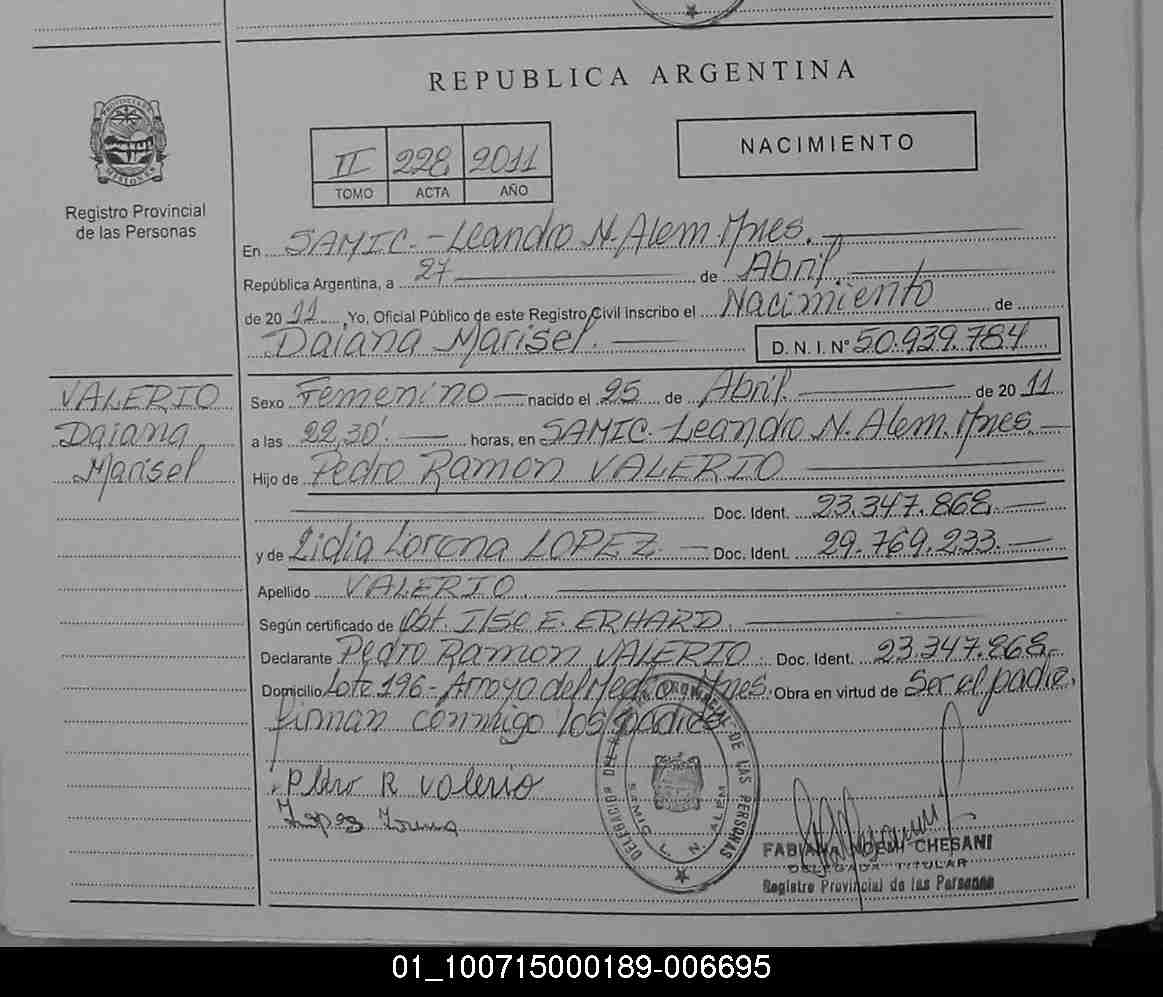 REPUBLICA ARGENTINA
PROVINCIA DE MISIONES
Registro Provincial
de las Personas
II 228 2011
TOMO ACTA AÑO
NACIMIENTO
En SAMIC.-Leandro N. Alem. Mnes.
República Argentina, a 27 de Abril
de 20 11 ,Yo, Oficial Público de este Registro Civil inscribo el Nacimiento de
Daiana Marisel. D. N. I. Nº 50.939.784
VALERIO
Daiana
Marisel
Sexo Femenino nacido el 25 de Abril de 20 11
a las 22,30' horas, en SAMIC. Leandro N. Alem. Mnes.
Hijo de Pedro Ramon VALERIO
Doc. Ident. 23.347.868
y de Lidia Lorena LOPEZ Doc. Ident. 29.769.233.
Apellido VALERIO
Según certificado de Obt. Ilse E. ERHARD.
Declarante Pedro Ramon VALERIO Doc. Ident. 23.347.868
Domicilio Lote 196- Arroyo del Medio Mnes. Obra en virtud de Ser el padre,
firman conmigo los
Pedro R Valerio
DELEGACION DEL PROVINCIAL DE LAS PERSONAS
SAMIC L. N. ALEM
FABIANA NOEMI CHESANI
DELEGADA TITULAR
Registro Provincial de las Personas
01_100715000189-006695